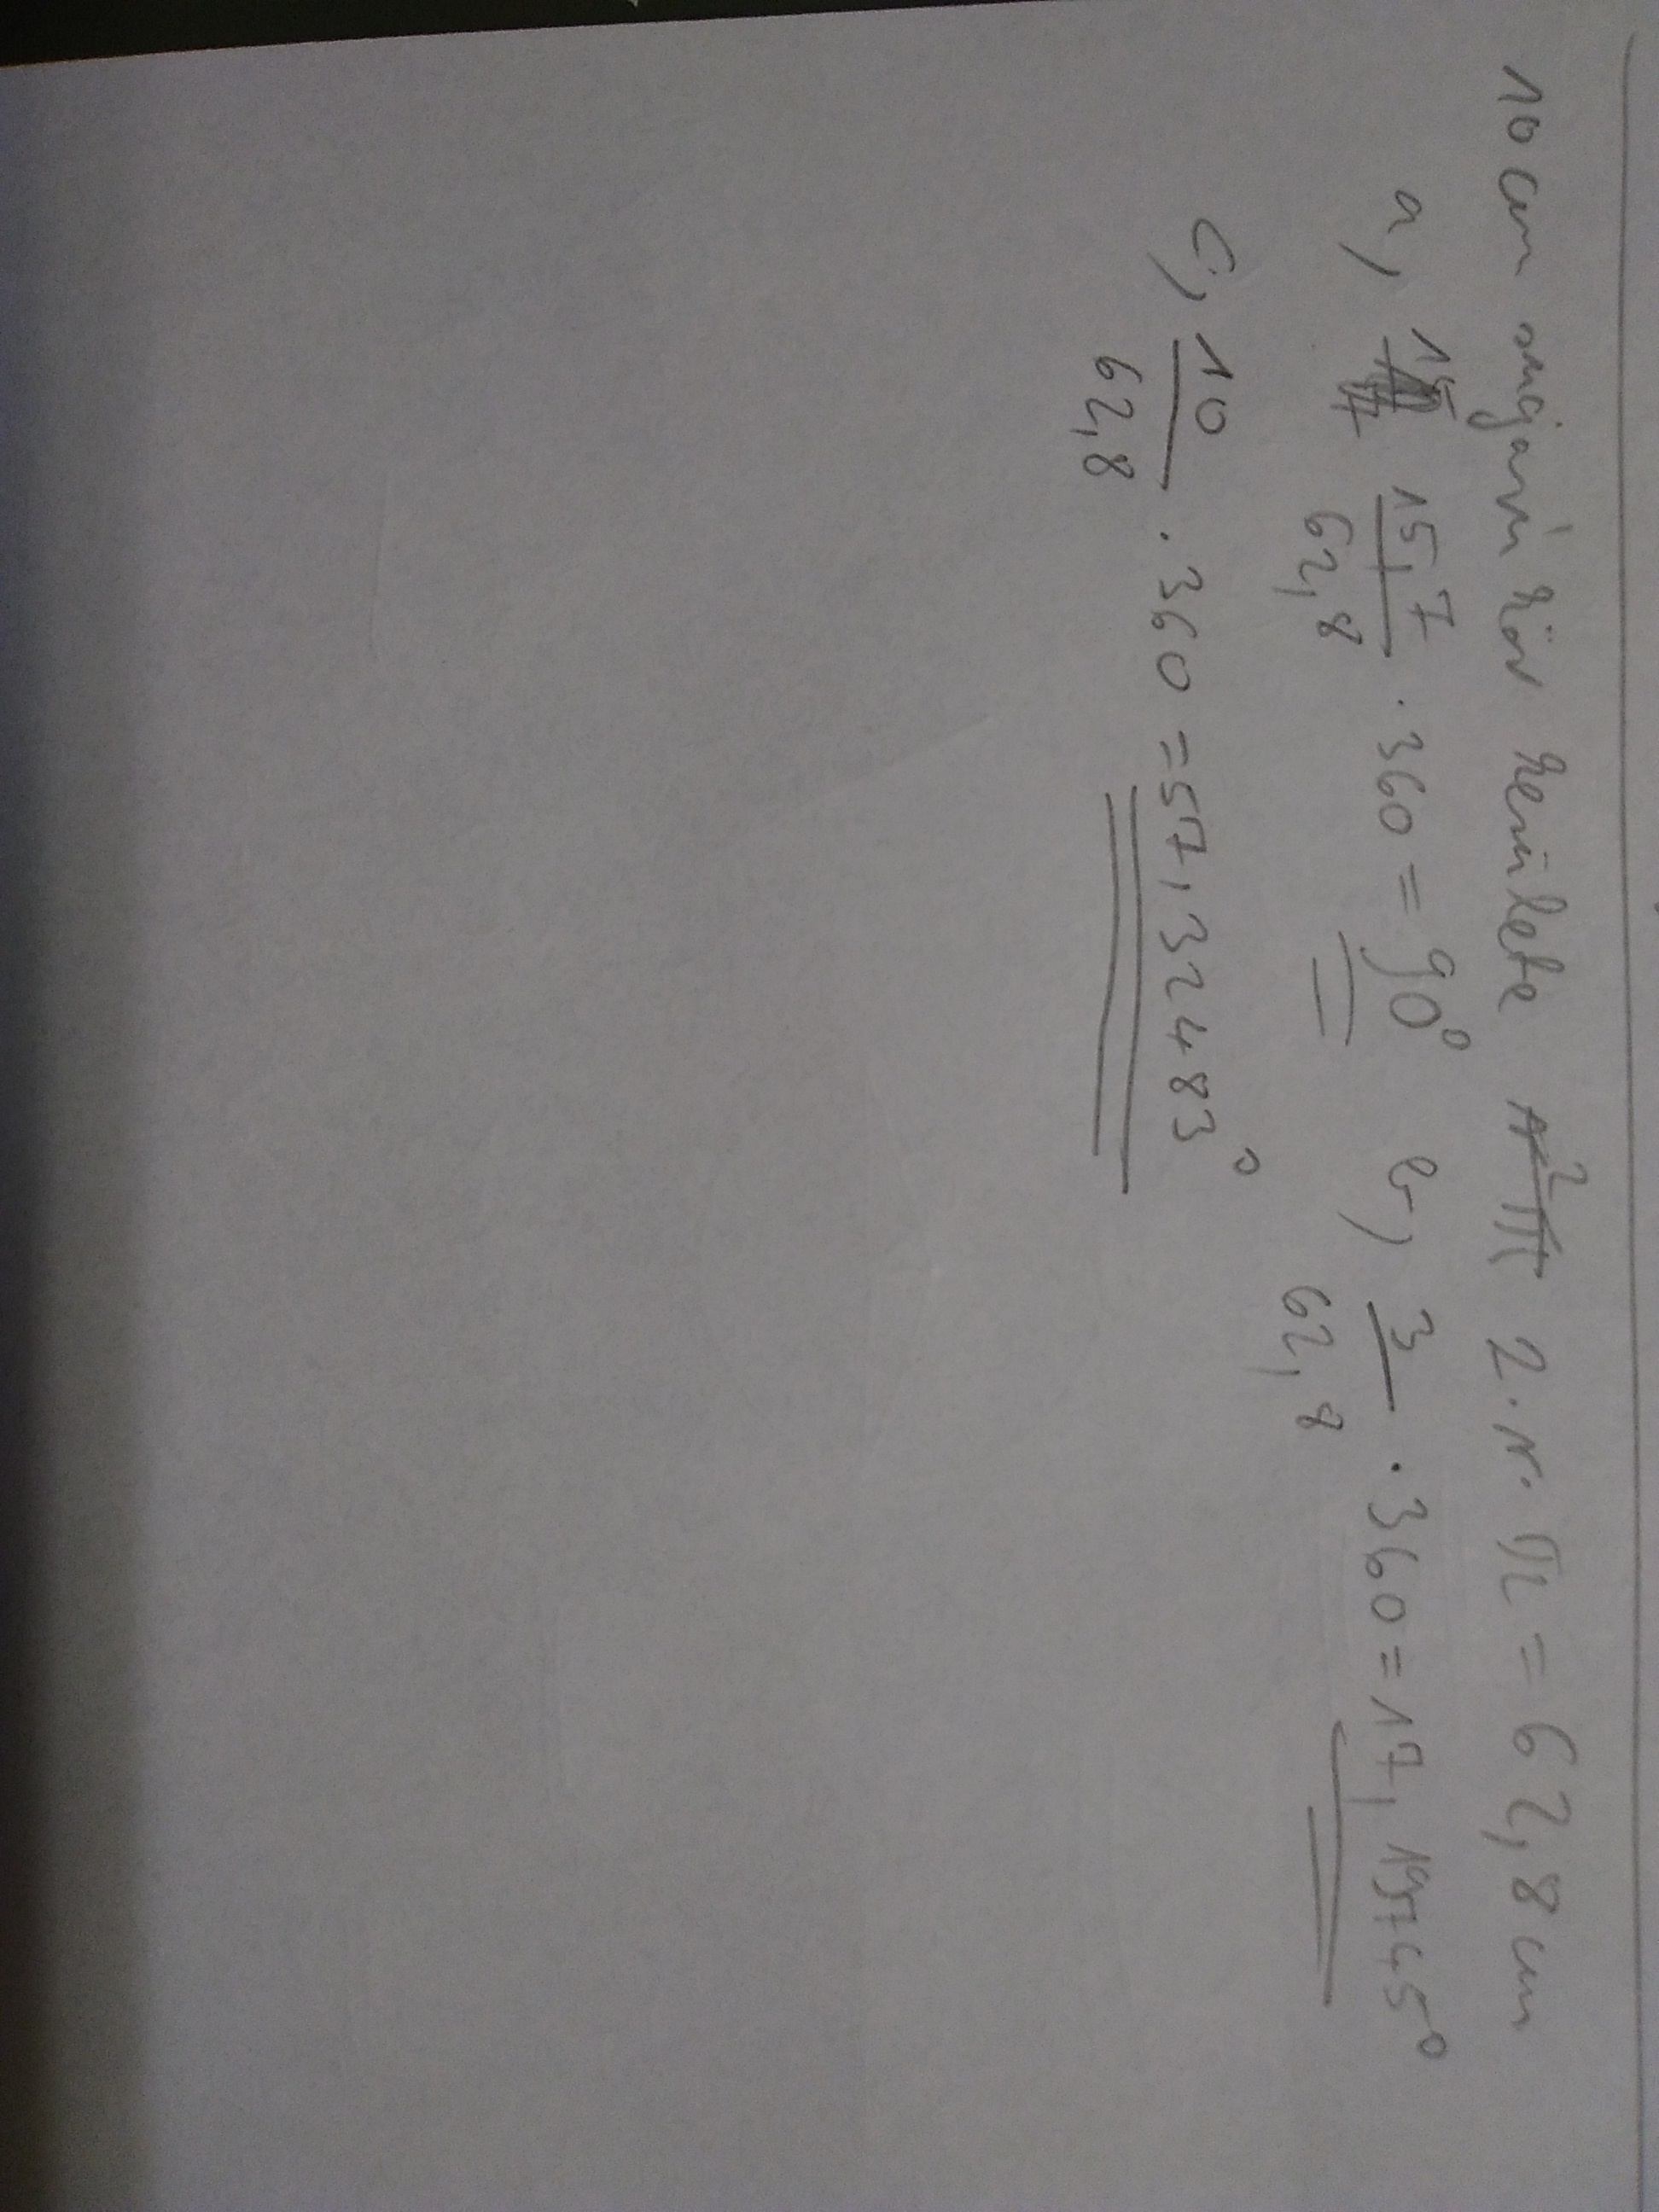 10 cm sugarú kör kerülete r²π 2·r·π = 62,8 cm
a, 15,7/62,8 · 360 = 90° b, 3/62,8 · 360 = 17,19745°
c, 10/62,8 · 360 = 57,32483°